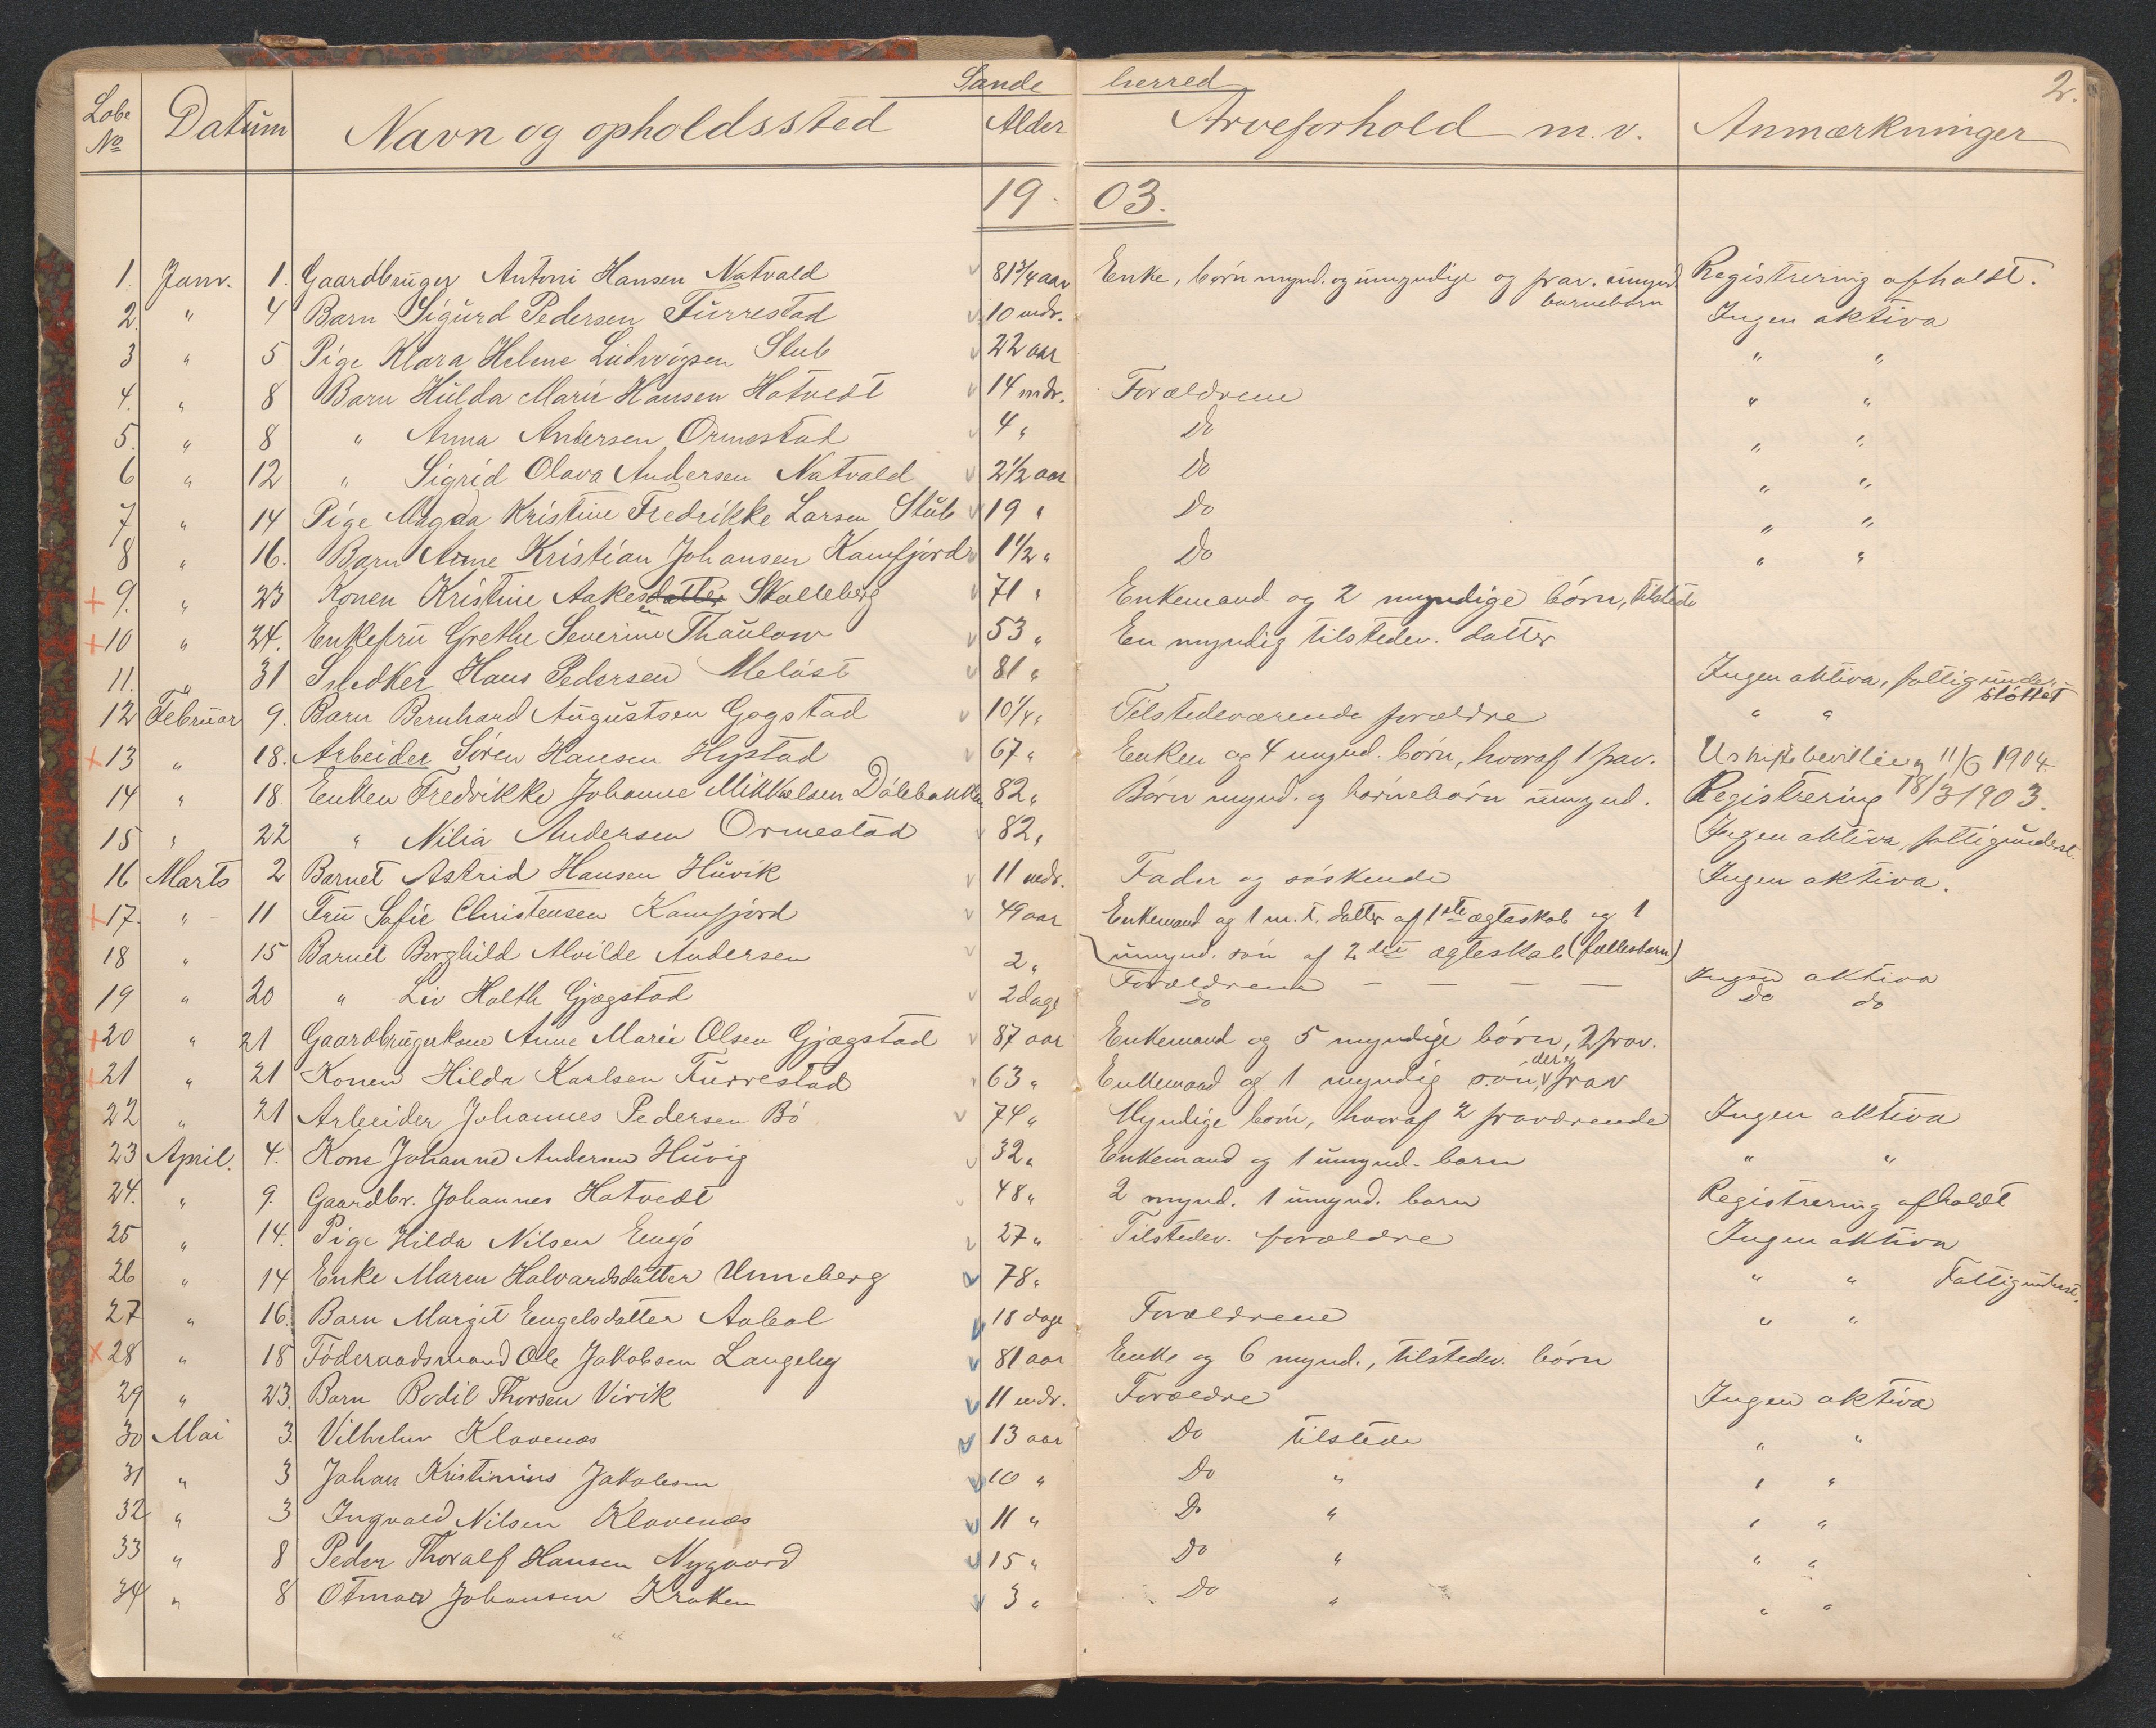 Sande herred
2.
Løbe No Datum Navn og opholdssted Alder Arveforhold m.v. Anmærkninger
19 03.
1. Janv. 1. Gaardbruger Antoni Hansen Natvald 81 3/4 aar Enke, børn mynd. og umyndige og frav. umynd. barnebarn Registrering afholdt.
2. " 4 Barn Sigurd Pedersen Furrestad 10 mdr. Ingen aktiva
3 " 5 Pige Klara Helene Ludvigsen Stub 22 aar " "
4. " 8 Barn Hulda Marie Hansen Hotvedt 14 mdr. Forældrene " "
5. " 8 " Anna Andersen Ormestad 4 " Do " "
6 " 12 " Sigrid Olava Andersen Natvald 2 1/2 aar Do " "
7 " 14 Pige Magda Kristine Fredrikke Larsen Stub 19 " Do " "
8 " 16. Barn Arne Kristian Johansen Kamfjord 1 1/2 " Do " "
+ 9. " 23 Konen Kristine Aakesdatter Skolleberg 71 " Enkemand og 2 myndige børn, tilstede
+ 10 " 24. Enkefru Grethe Severine Thaulow 53 " En myndig tilstedev. datter
11. " 31 Snedker Hans Pedersen Meløst 81 " Ingen aktiva, fattigunderstøttet
12 Februar 9. Barn Bernhard Augustsen Gogstad 10 1/4 " Tilstedeværende forældre " "
+ 13 " 18. Arbeider Søren Hansen Hystad 67 " Enken og 4 mynd. børn, hvoraf 1 frav. Uskiftebevilling 11/6 1904.
14 " 18. Enken Fredrikke Johanne Mikkelsen Dølebakken 82 " Børn mynd. og barnebørn umynd. Registrering 18/3 1903.
15 " 22 " Nilia Andersen Ormestad 82 " Ingen aktiva, fattigunderst.
16 Marts 2 Barnet Astrid Hansen Huvik 11 mdr. Fader og søskende Ingen aktiva.
+ 17. " 11 Fru Sofie Christensen Kamfjord 49 aar Enkemand og 1 m. t. datter af 1ste ægteskab og 1
umynd. søn af 2det ægteskab (fællesbarn)
18 " 15 Barnet Borghild Alvilde Andersen 2 " Forældrene — — — — Ingen aktiva
19 " 20 " Liv Holth Gjøgstad 2 dage Do Do do
+ 20 " 21 Gaardbrugerkone Anne Marie Olsen Gjøgstad 87 aar Enkemand og 5 myndige børn, 2 frav.
+ 21 " 21 Konen Hilda Karlsen Furrestad 63 " Enkemand og 1 myndig søn, der er frav
22 " 21 Arbeider Johannes Pedersen Bø 74 " Myndige børn, hvoraf 2 fraværende Ingen aktiva
23 April. 4. Kone Johanne Andersen Huvig 32 " Enkemand og 1 umynd. barn " "
24. " 9. Gaardbr. Johannes Hotvedt 48 " 2 mynd. 1 umynd. barn Registrering afholdt
25 " 14. Pige Hilda Nilsen Engø 27 " Tilstedev. forældre Ingen aktiva
26 " 14 Enke Maren Halvardsdatter Unneberg 78 " " " Fattigunderst.
27 " 16. Barn Margit Engelsdatter Aabol 18 dage Forældrene " "
+ 28 " 18 Føderaadsmand Ole Jakobsen Langeby 81 aar Enke og 6 mynd., tilstedev. børn
29 " 23. Barn Bodil Thorsen Virik 11 mdr. Forældre Ingen aktiva
30 Mai 3. Vilhelm Klavenæs 13 aar Do tilstede " "
31 " 3 Johan Kristinius Jakobsen 10 " Do " " "
32 " 3 Ingvald Nilsen Klavenæs 11 " Do " " "
33 " 8 Peder Thoralf Hansen Nygaard 15 " Do " " "
34 " 8 Otmar Johansen Kraken 3 " Do " " "